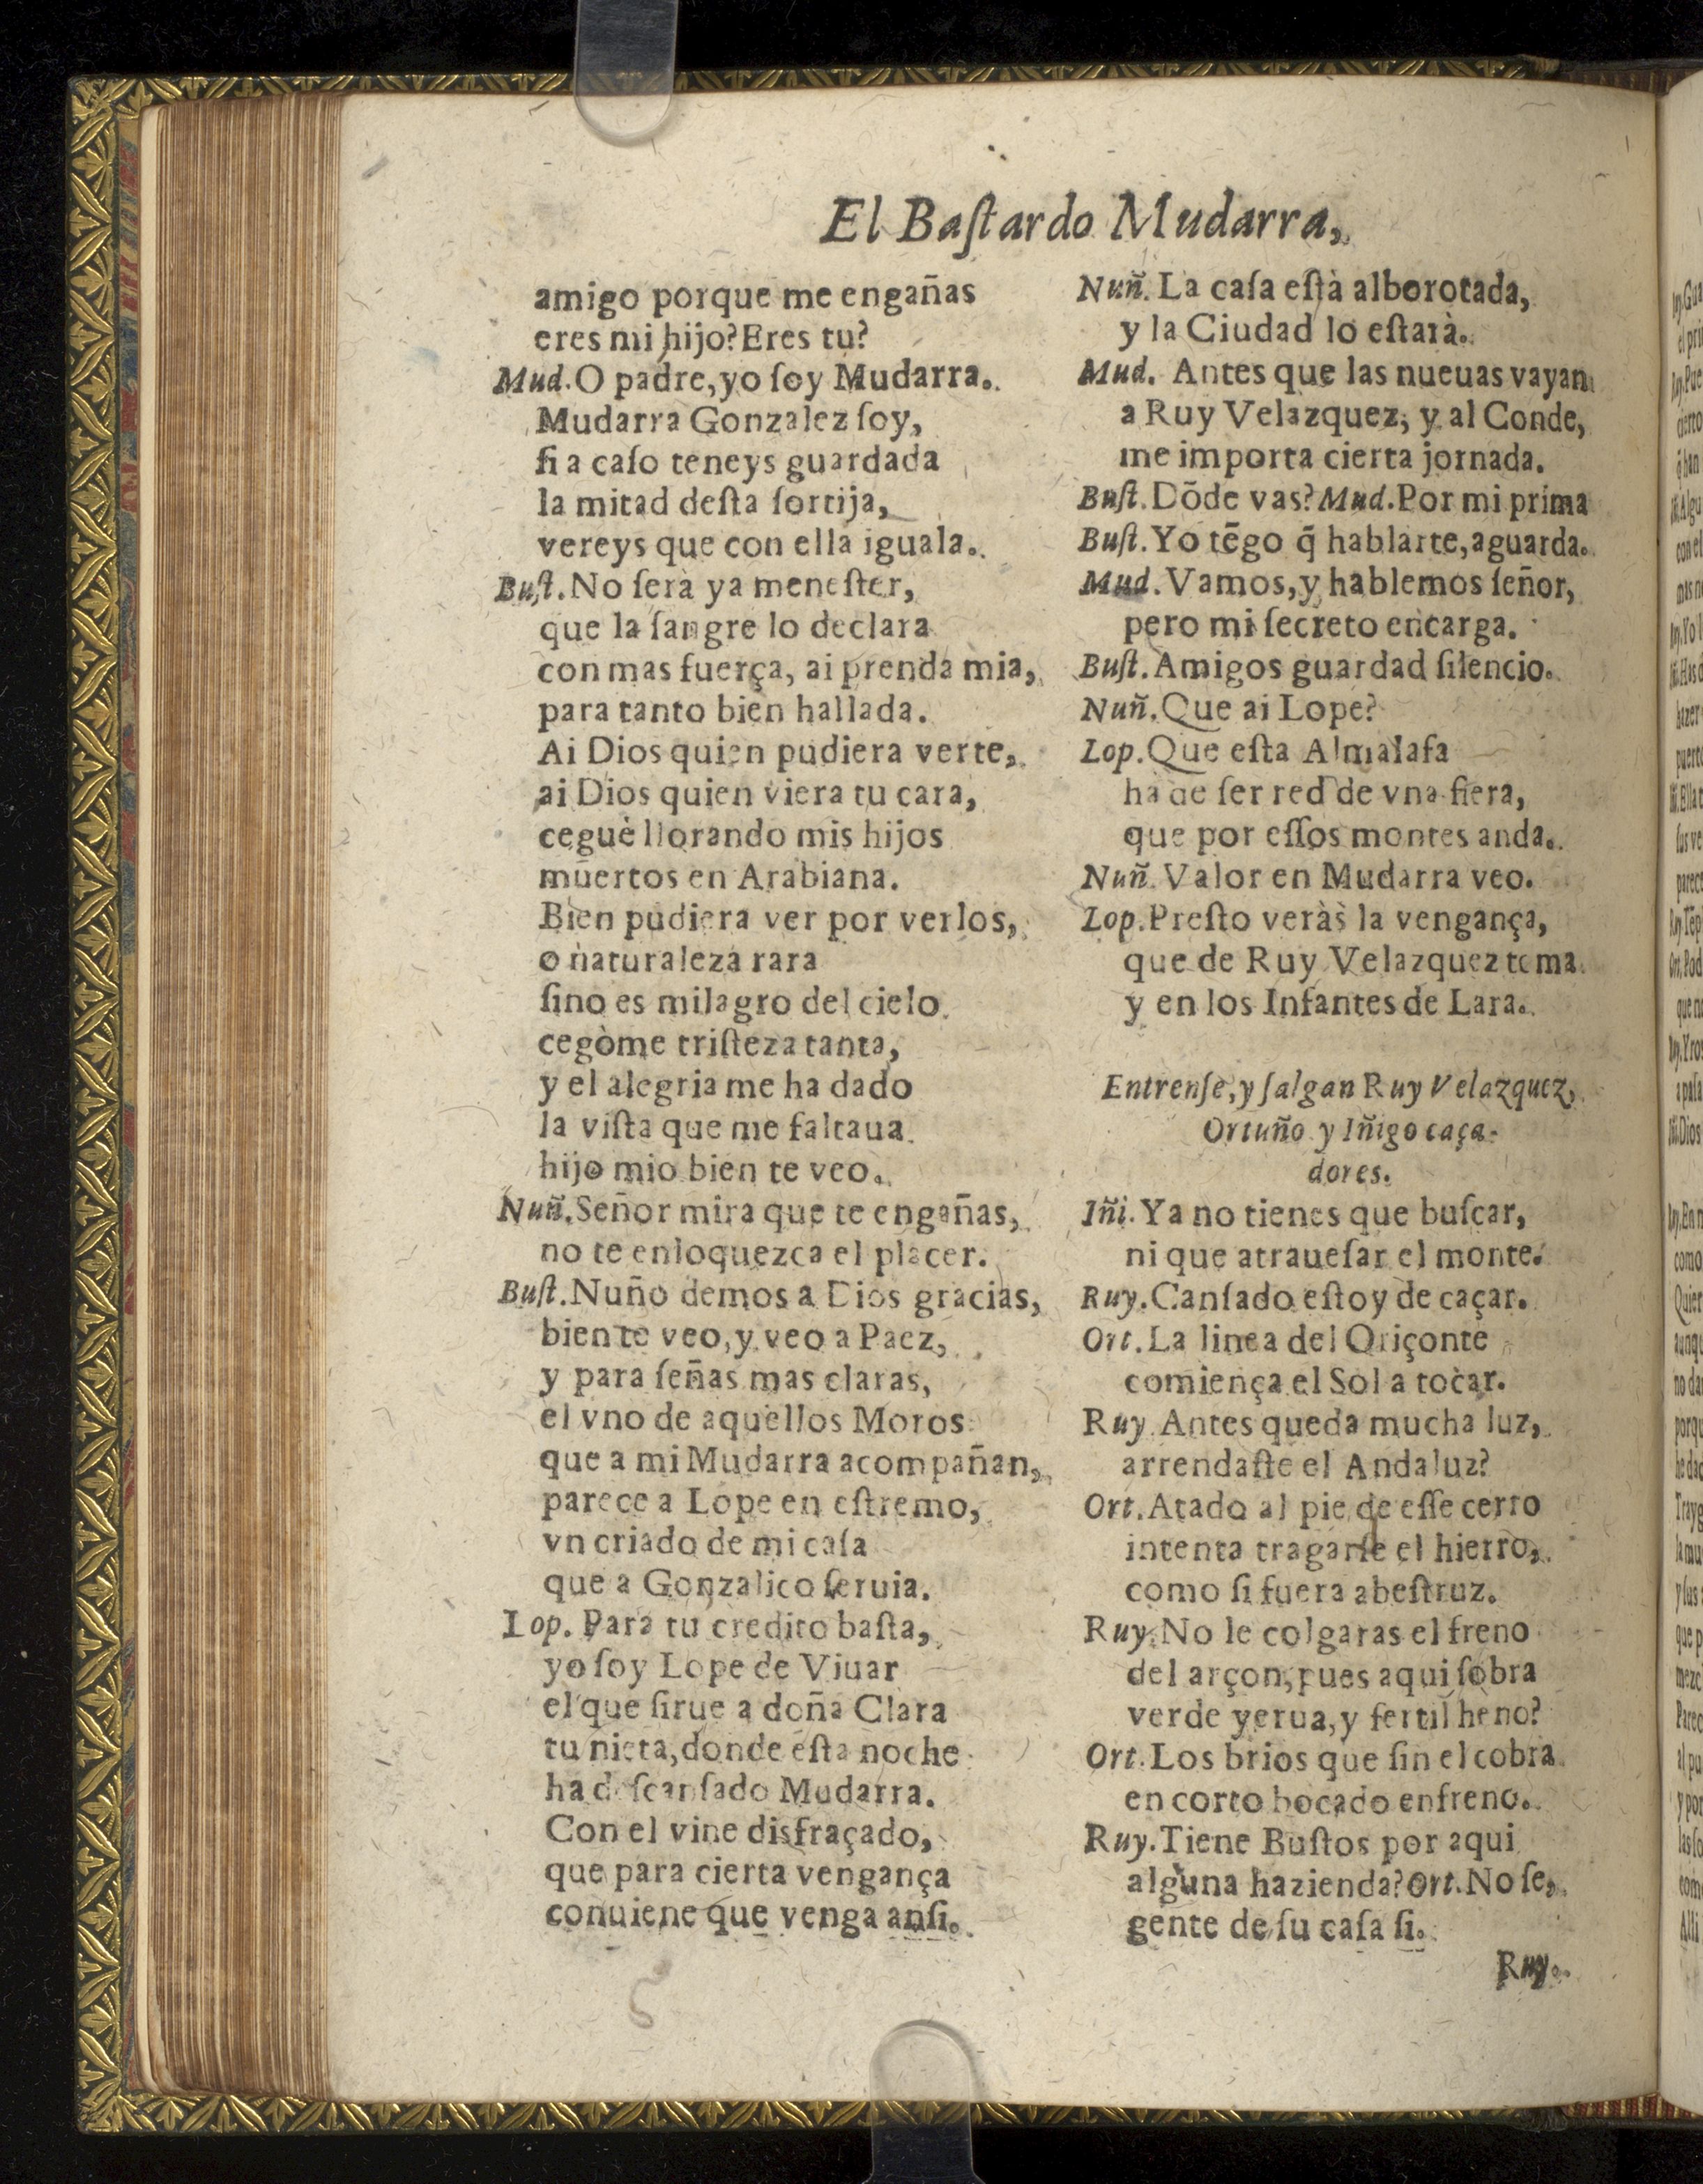 El Baſtardo Mudarra,
amigo porque me engañas
eres mi hijo? Eres tu?
Mud. O padre, yo ſoy Mudarra.
Mudarra Gonzalez ſoy,
ſi a caſo teneys guardada
la mitad deſta ſortija,
vereys que con ella iguala.
Buſt. No ſerà ya meneſter,
que la ſangre lo declara
con mas fuerça, ai prenda mia,
para tanto bien hallada.
Ai Dios quien pudiera verte,
ai Dios quien viera tu cara,
ceguè llorando mis hijos
muertos en Arabiana.
Bien pudiera ver por verlos,
o naturaleza rara
ſino es milagro del cielo
cegòme triſteza tanta,
y el alegria me ha dado
la viſta que me faltaua
hijo mio bien te veo.
Nuñ. Señor mira que te engañas,
no te enloquezca el placer.
Buſt. Nuño demos a Dios gracias,
bien te veo, y veo a Paez,
y para ſeñas mas claras,
el vno de aquellos Moros
que a mi Mudarra acompañan,
parece a Lope en eſtremo,
vn criado de mi caſa
que a Gonzalico ſeruia.
Lop. Para tu credito baſta,
yo ſoy Lope de Viuar
el que ſirue a doña Clara
tu nieta, donde eſta noche
ha deſcanſado Mudarra.
Con el vine disfraçado,
que para cierta vengança
conuiene que venga anſi.
Nuñ. La caſa eſtà alborotada,
y la Ciudad lo eſtarà.
Mud. Antes que las nueuas vayan
a Ruy Velazquez, y al Conde,
me importa cierta jornada.
Buſt. Dõde vas? Mud. Por mi prima
Buſt. Yo tẽgo q̃ hablarte, aguarda.
Mud. Vamos, y hablemos ſeñor,
pero mi ſecreto encarga.
Buſt. Amigos guardad ſilencio.
Nuñ. Que ai Lope?
Lop. Que eſta Almalafa
ha de ſer red de vna fiera,
que por eſſos montes anda.
Nuñ. Valor en Mudarra veo.
Lop. Preſto veràs la vengança,
que de Ruy Velazquez toma
y en los Infantes de Lara.
Entrenſe, y ſalgan Ruy Velazquez,
Ortuño y Iñigo caça-
dores.
Iñi. Ya no tienes que buſcar,
ni que atraueſar el monte.
Ruy. Canſado eſtoy de caçar.
Ort. La linea del Oriçonte
comiença el Sol a tocar.
Ruy. Antes queda mucha luz,
arrendaſte el Andaluz?
Ort. Atado al pie de eſſe cerro
intenta tragarſe el hierro,
como ſi fuera abeſtruz.
Ruy. No le colgaras el freno
del arçon, pues aqui ſobra
verde yerua, y fertil heno?
Ort. Los brios que ſin el cobra
en corto bocado enfreno.
Ruy. Tiene Buſtos por aqui
alguna hazienda? Ort. No ſe,
gente de ſu caſa ſi.
Ruy.